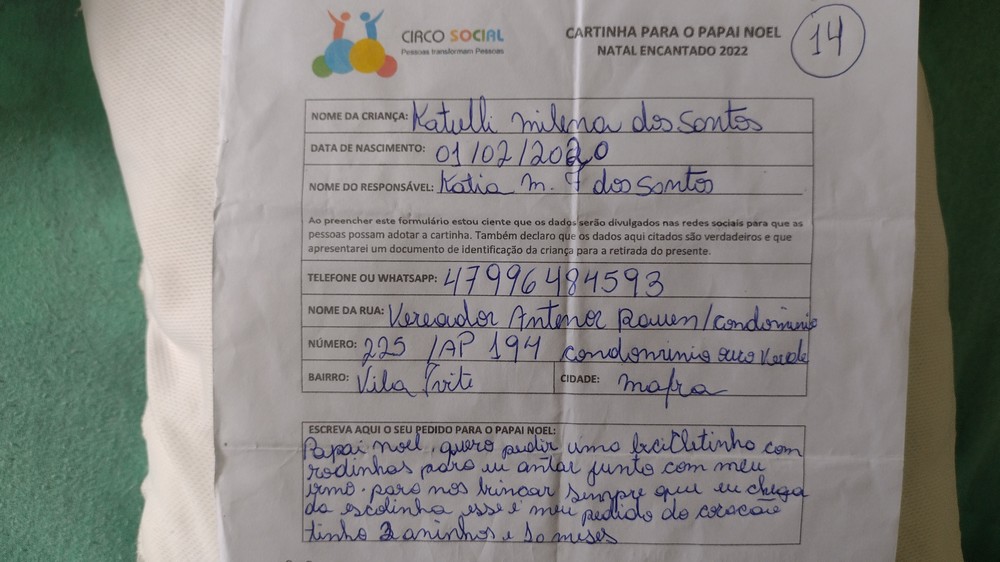 CIRCO SOCIAL
Pessoas transformam Pessoas
CARTINHA PARA O PAPAI NOEL
NATAL ENCANTADO 2022
14
NOME DA CRIANÇA: Katulli milena dos Santos
DATA DE NASCIMENTO: 01/02/2020
NOME DO RESPONSÁVEL: Katia m. F dos Santos
Ao preencher este formulário estou ciente que os dados serão divulgados nas redes sociais para que as
pessoas possam adotar a cartinha. Também declaro que os dados aqui citados são verdadeiros e que
apresentarei um documento de identificação da criança para a retirada do presente.
TELEFONE OU WHATSAPP: 47996484593
NOME DA RUA: Vereador Antenor Rauen/condominio
NÚMERO: 225 /AP 194 condominio ouro Verde
BAIRRO: Vila Ivite CIDADE: mafra
ESCREVA AQUI O SEU PEDIDO PARA O PAPAI NOEL:
Papai noel, quero pudir uma com
rodinhas para eu antar junto com meu
irmo. para nos brincar sempre que eu chega
da escolinha esse é meu pedido do coracão
tinho 2 aninhos e 10 meses